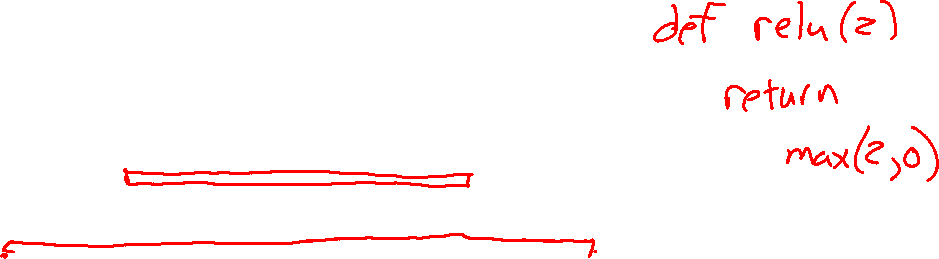 def relu(z)
return
max(z,0)